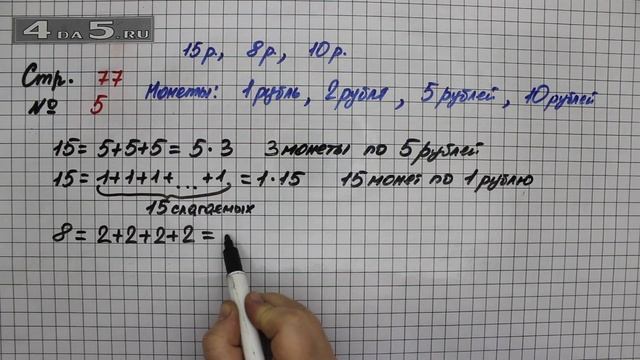 4 ДА 5.RU
15р., 8р., 10р.
Стр. 77
№ 5
Монеты: 1 рубль, 2 рубля, 5 рублей, 10 рублей
15 = 5+5+5 = 5·3 3 монеты по 5 рублей
15 = 1+1+1+...+1, = 1·15 15 монет по 1 рублю
15 слагаемых
8 = 2+2+2+2 =